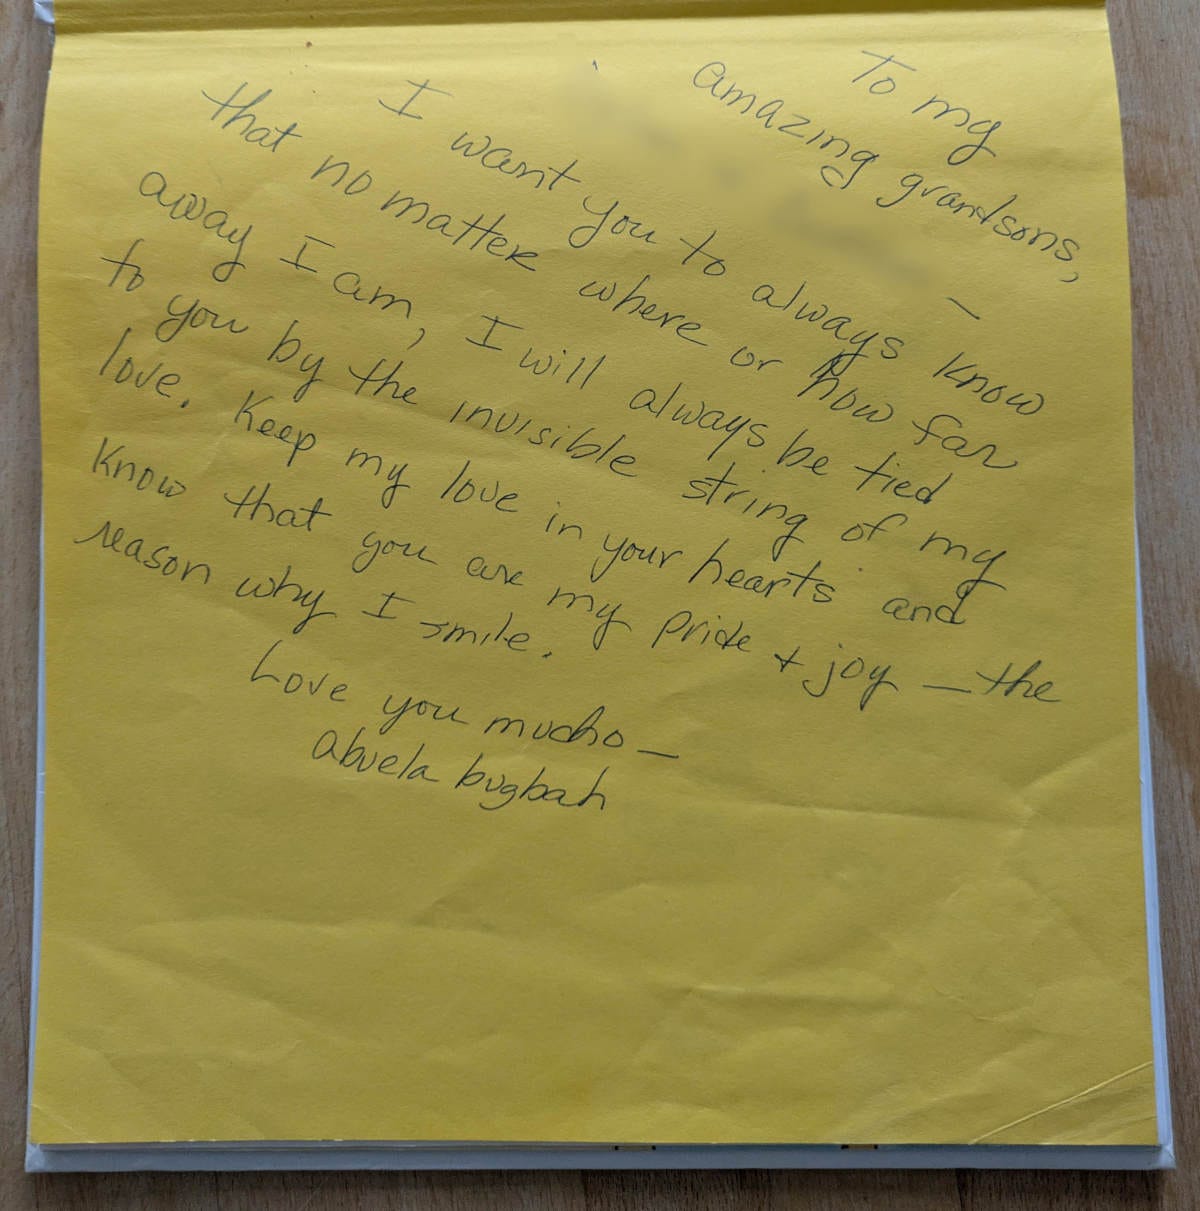 To my
amazing grandsons,
—
I want you to always know
that no matter where or how far
away I am, I will always be tied
to you by the invisible string of my
love. Keep my love in your hearts and
know that you are my pride + joy — the
reason why I smile.
Love you mucho —
abuela bugbah